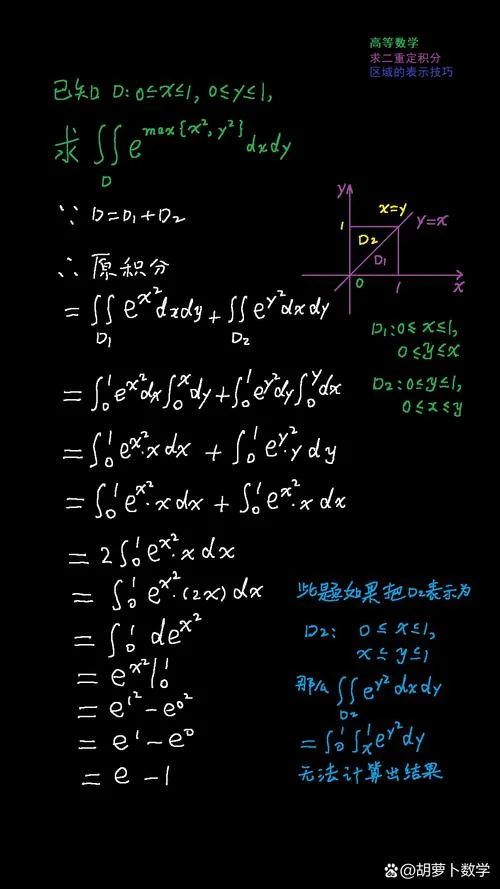 高等数学
求二重定积分
区域的表示技巧
已知 D:0≤x≤1, 0≤y≤1,
求 ∬_D e^{max{x², y²}} dxdy
∵ D=D₁+D₂
∴ 原积分
= ∬_{D₁} e^{x²}dxdy + ∬_{D₂} e^{y²}dxdy
= ∫₀¹e^{x²}dx∫₀^x dy + ∫₀¹e^{y²}dy∫₀^y dx
= ∫₀¹e^{x²}·x dx + ∫₀¹e^{y²}·y dy
= ∫₀¹e^{x²}·x dx + ∫₀¹e^{x²}·x dx
= 2∫₀¹e^{x²}·x dx
= ∫₀¹e^{x²}·(2x)dx
= ∫₀¹de^{x²}
= e^{x²}|₀¹
= e^{1²} − e^{0²}
= e¹ − e⁰
= e − 1
y
x=y
y=x
1
D₂
D₁
0
1
x
D₁:0≤x≤1,
0≤y≤x
D₂:0≤y≤1,
0≤x≤y
此题如果把D₂表示为
D₂: 0≤x≤1,
x≤y≤1
那么 ∬_{D₂} e^{y²}dxdy
= ∫₀¹∫_x¹e^{y²}dy
无法计算出结果
@胡萝卜数学